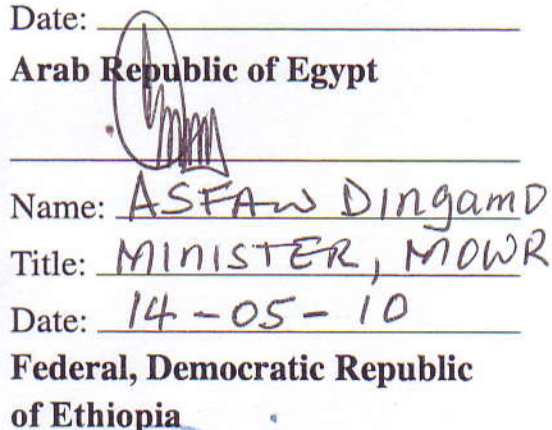 Date:
Arab Republic of Egypt
Name: ASFAW DINgamO
Title: MINISTER, MOWR
Date: 14-05-10
Federal, Democratic Republic
of Ethiopia